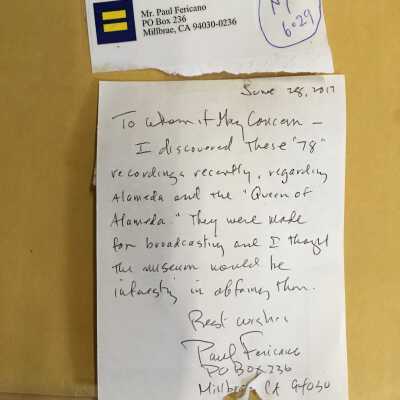 Mr. Paul Fericano
PO Box 236
Millbrae, CA 94030-0236
6.29
June 28, 2017
To Whom it May Concern —
I discovered these "78"
recordings recently, regarding
Alameda and the "Queen of
Alameda." They were made
for broadcasting and I thought
the museum would be
interesting in obtaining them.
Best wishes
Paul Fericano
PO Box 236
Millbrae CA 94030